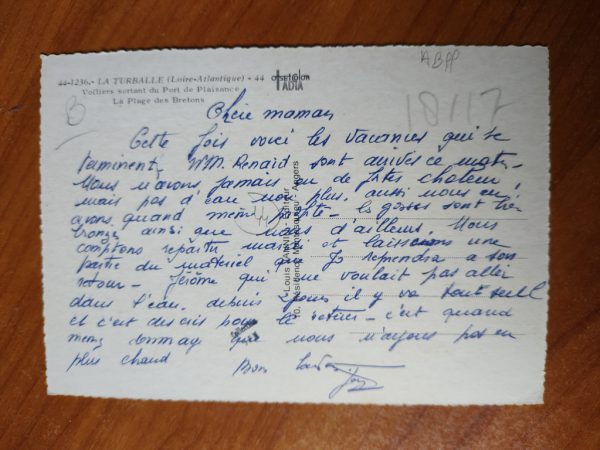 44-1236.- LA TURBALLE (Loire-Atlantique) - 44
Voiliers sortant du Port de Plaisance
La Plage des Bretons
OFFSETCOLOR
TADIA
ABPP
B
18117
Chère maman
Cette fois voici les vacances qui se
terminent. MM. Renard sont arrivés ce matin.
Nous n'avons jamais eu de fortes chaleurs,
mais pas d'eau non plus, aussi nous en
avons quand même profité - les gosses sont très
bronzés ainsi que nous d'ailleurs. Nous
comptons repartir mardi et laisserons une
partie du matériel que reprendra à son
retour - Jérôme qui ne voulait pas aller
dans l'eau, depuis jours il y va tout seul
et c'est des cris pour le retirer - c'est quand
même dommage que nous n'ayons pas eu
plus chaud Bons
Louis Éditeur
Résidence - Angers